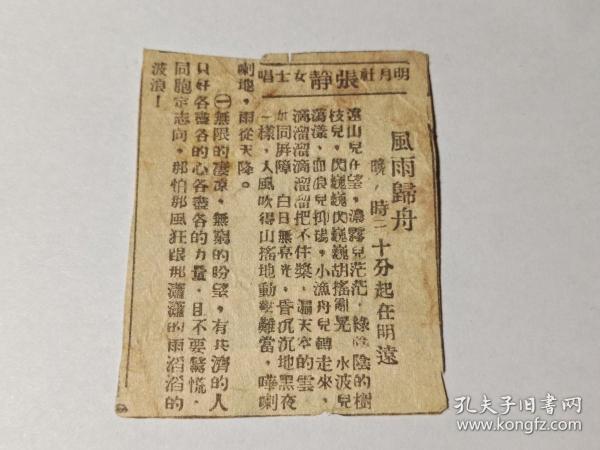 明月社張靜女士唱
風雨歸舟
晚　時二十分起在明遠
遠山兒在望，濃霧兒茫茫，綠陰陰的樹
枝兒，閃巍巍閃巍巍胡搖亂晃，水波兒
蕩漾，血浪兒抑揚，小漁舟兒轉走來，
滴溜溜滴溜溜把不住槳，漏天空的雲
如同屏障，白日無亮光，昏沉沉地黑夜
一樣，大風吹得山搖地動難當，嘩喇
喇地，雨從天降。
㊀無限的凄凉，無窮的盼望，有共濟的人
只好各盡各的心各盡各的力量，且不要驚慌，
同胞定志向，那怕那風狂跟那瀟瀟的雨滔滔的
波浪！
孔夫子旧書网
www.kongfz.com